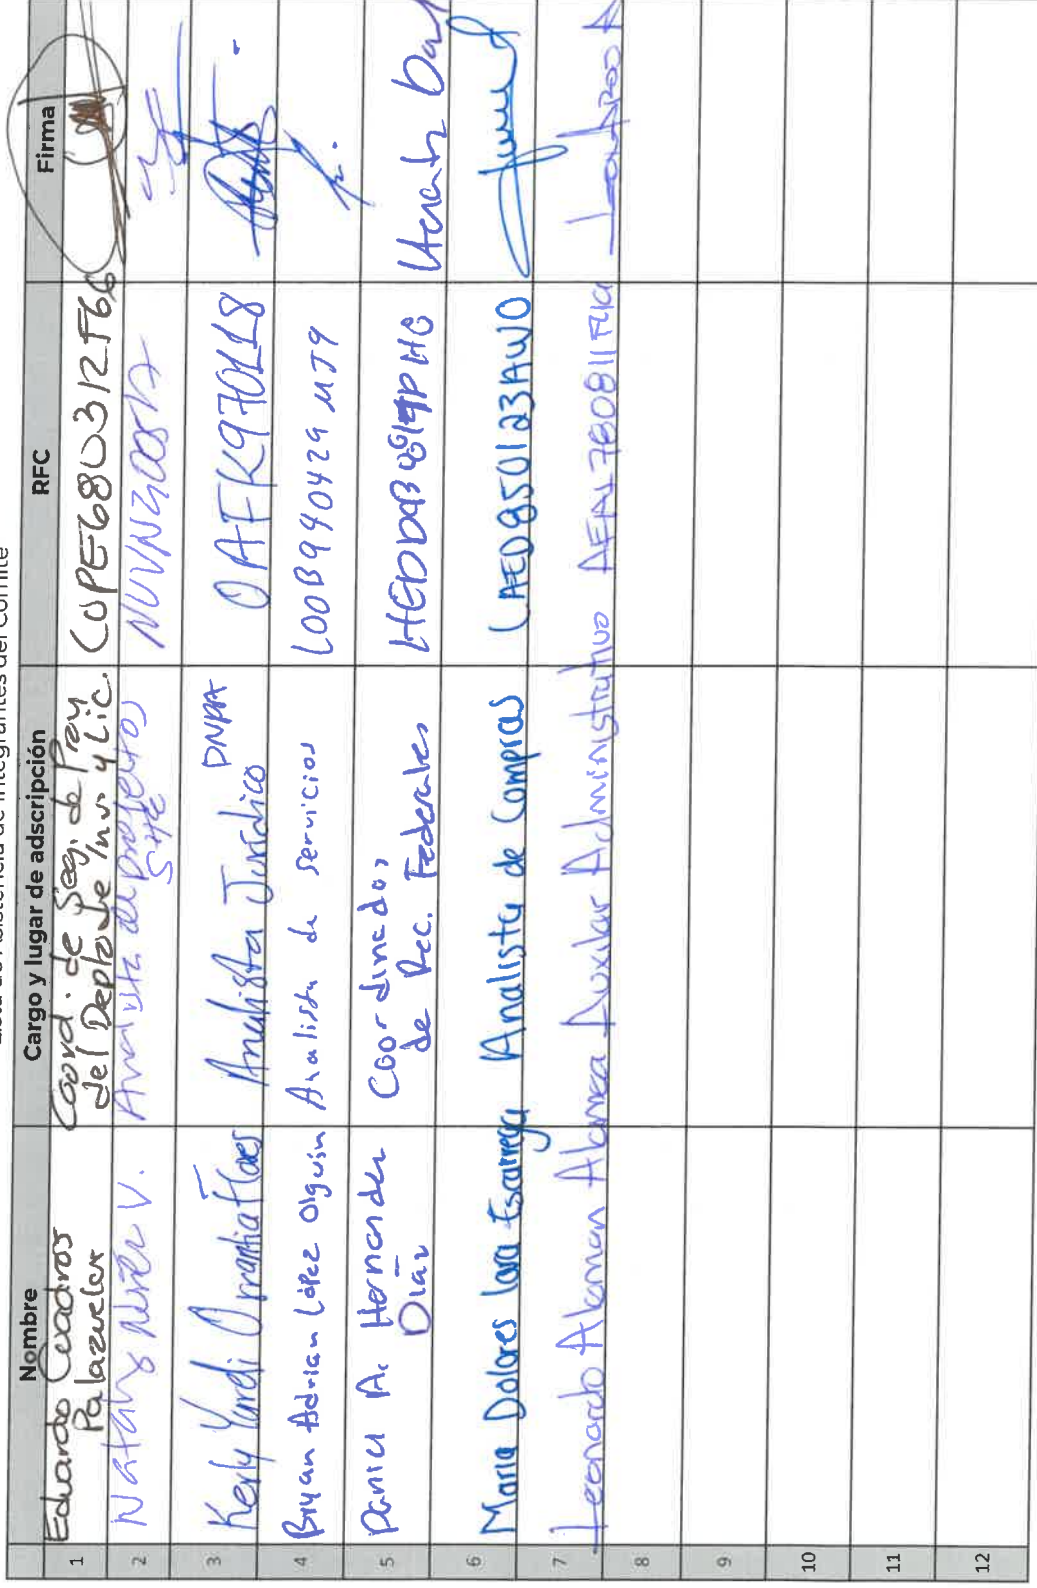 Lista de Asistencia de Integrantes del Comité
Nombre Cargo y lugar de adscripción RFC Firma
1 Eduardo Cuadros Palazuelos Coord. de Seg. de Proy. del Depto de Inv. y Lic. CUPE680312F66
2 Nataly V. Analista de proyectos
3 Kerly Yaredi Orrantia Flores Analista Jurídico DNPA OAFK970118
4 Bryan Adrian López Olguin Analista de Servicios LOOB990429MJ9
5 Daniel A. Hernandez Díaz Coordinador de Rec. Federales
6 Maria Dolores Lara Escarrega Analista de Compras LAED850123AW0
7 Leonardo Aleman Alamea Auxiliar Administrativo
8
9
10
11
12